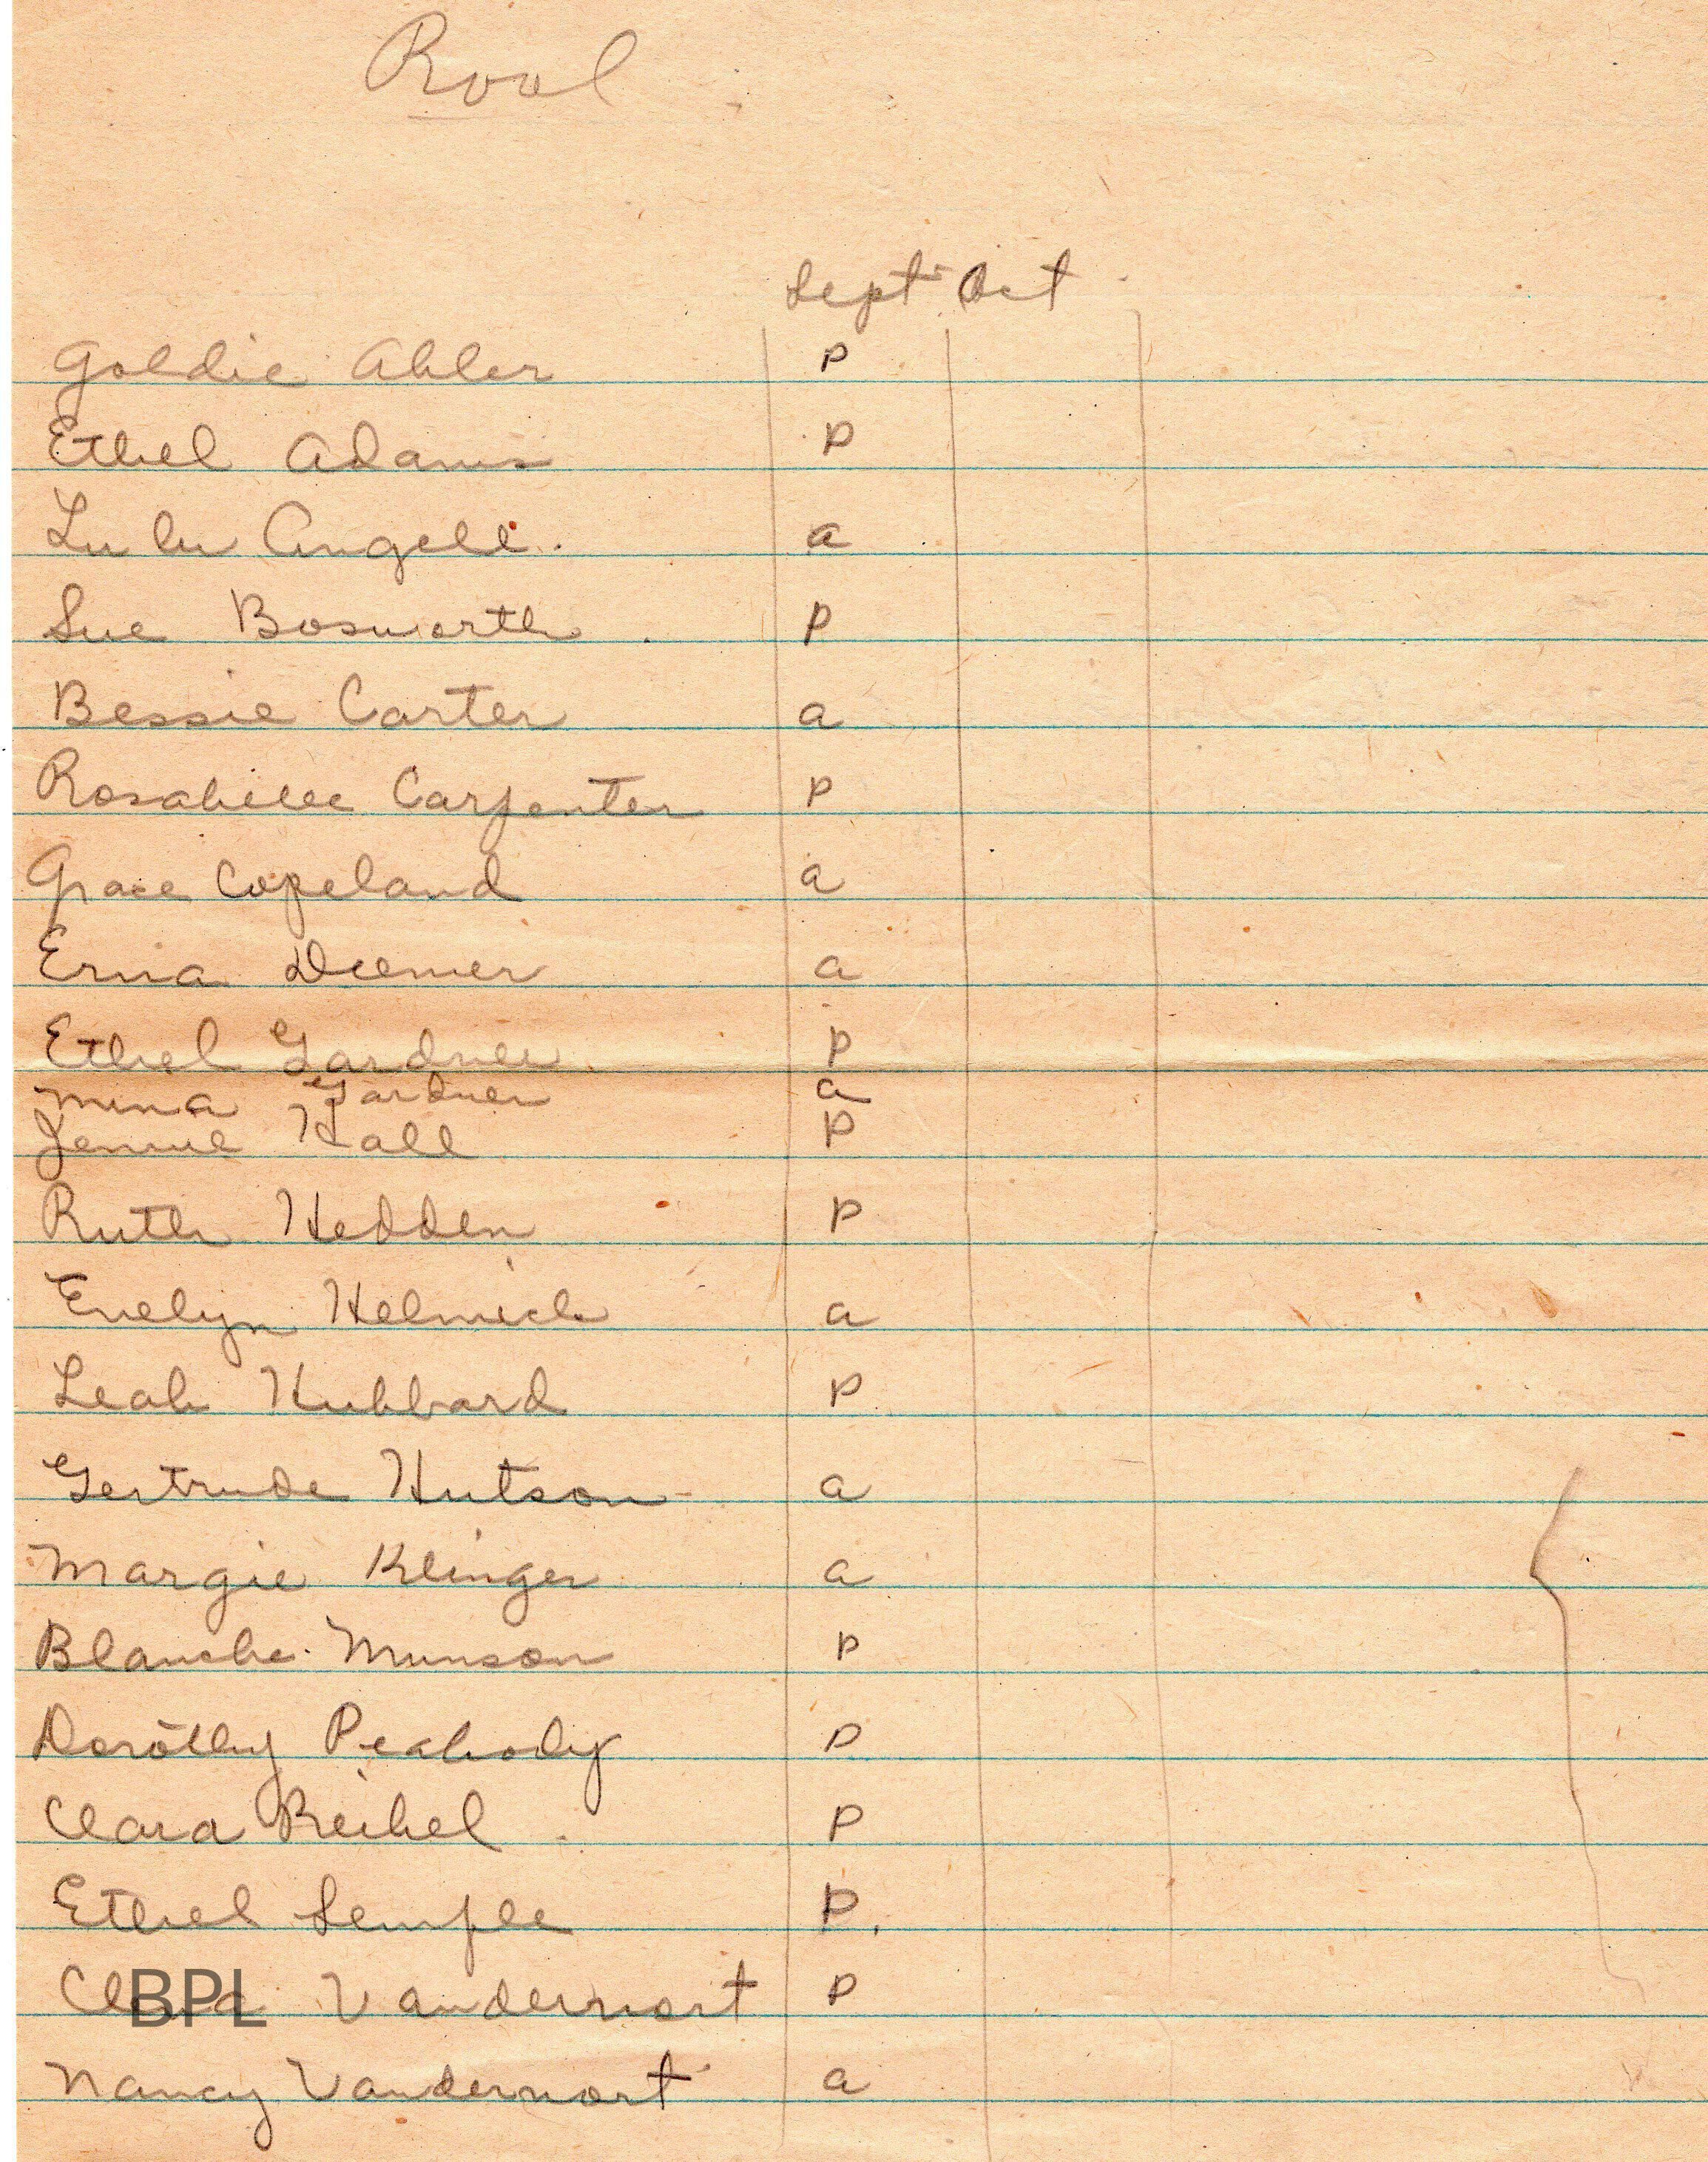 Rool
Sept Oct
Goldie Ahler P
Ethel Adams P
Lulu Angell. a
Sue Bosworth P
Bessie Carter a
Rosabelle Carpenter P
Grace Copeland a
Erna Deemer a
Ethel Gardner P
Mina Gardner a
Jennie Hall P
Ruth Hedden P
Evelyn Helmick a
Leah Hubbard P
Gertrude Hutson a
Margie Klinger a
Blanche Munson P
Dorothy Peabody P
Clara Reihel P
Ethel Semple P.
Vandervort P
Nancy Vandervort a
BPL